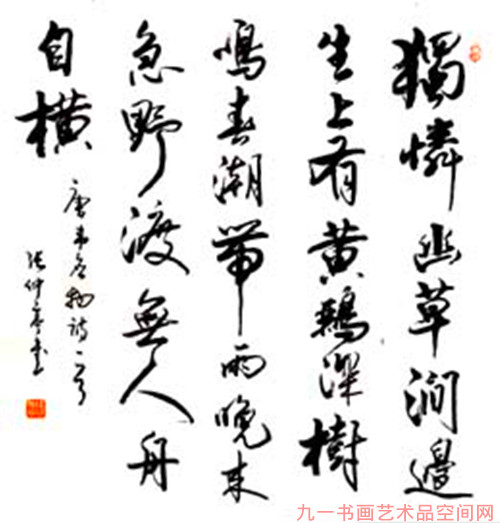 獨憐幽草澗邊
生上有黃鸝深樹
鳴春潮帶雨晚来
急野渡無人舟
自橫
唐韦应物詩一首
张仲亭書
九一书画艺术品空间网